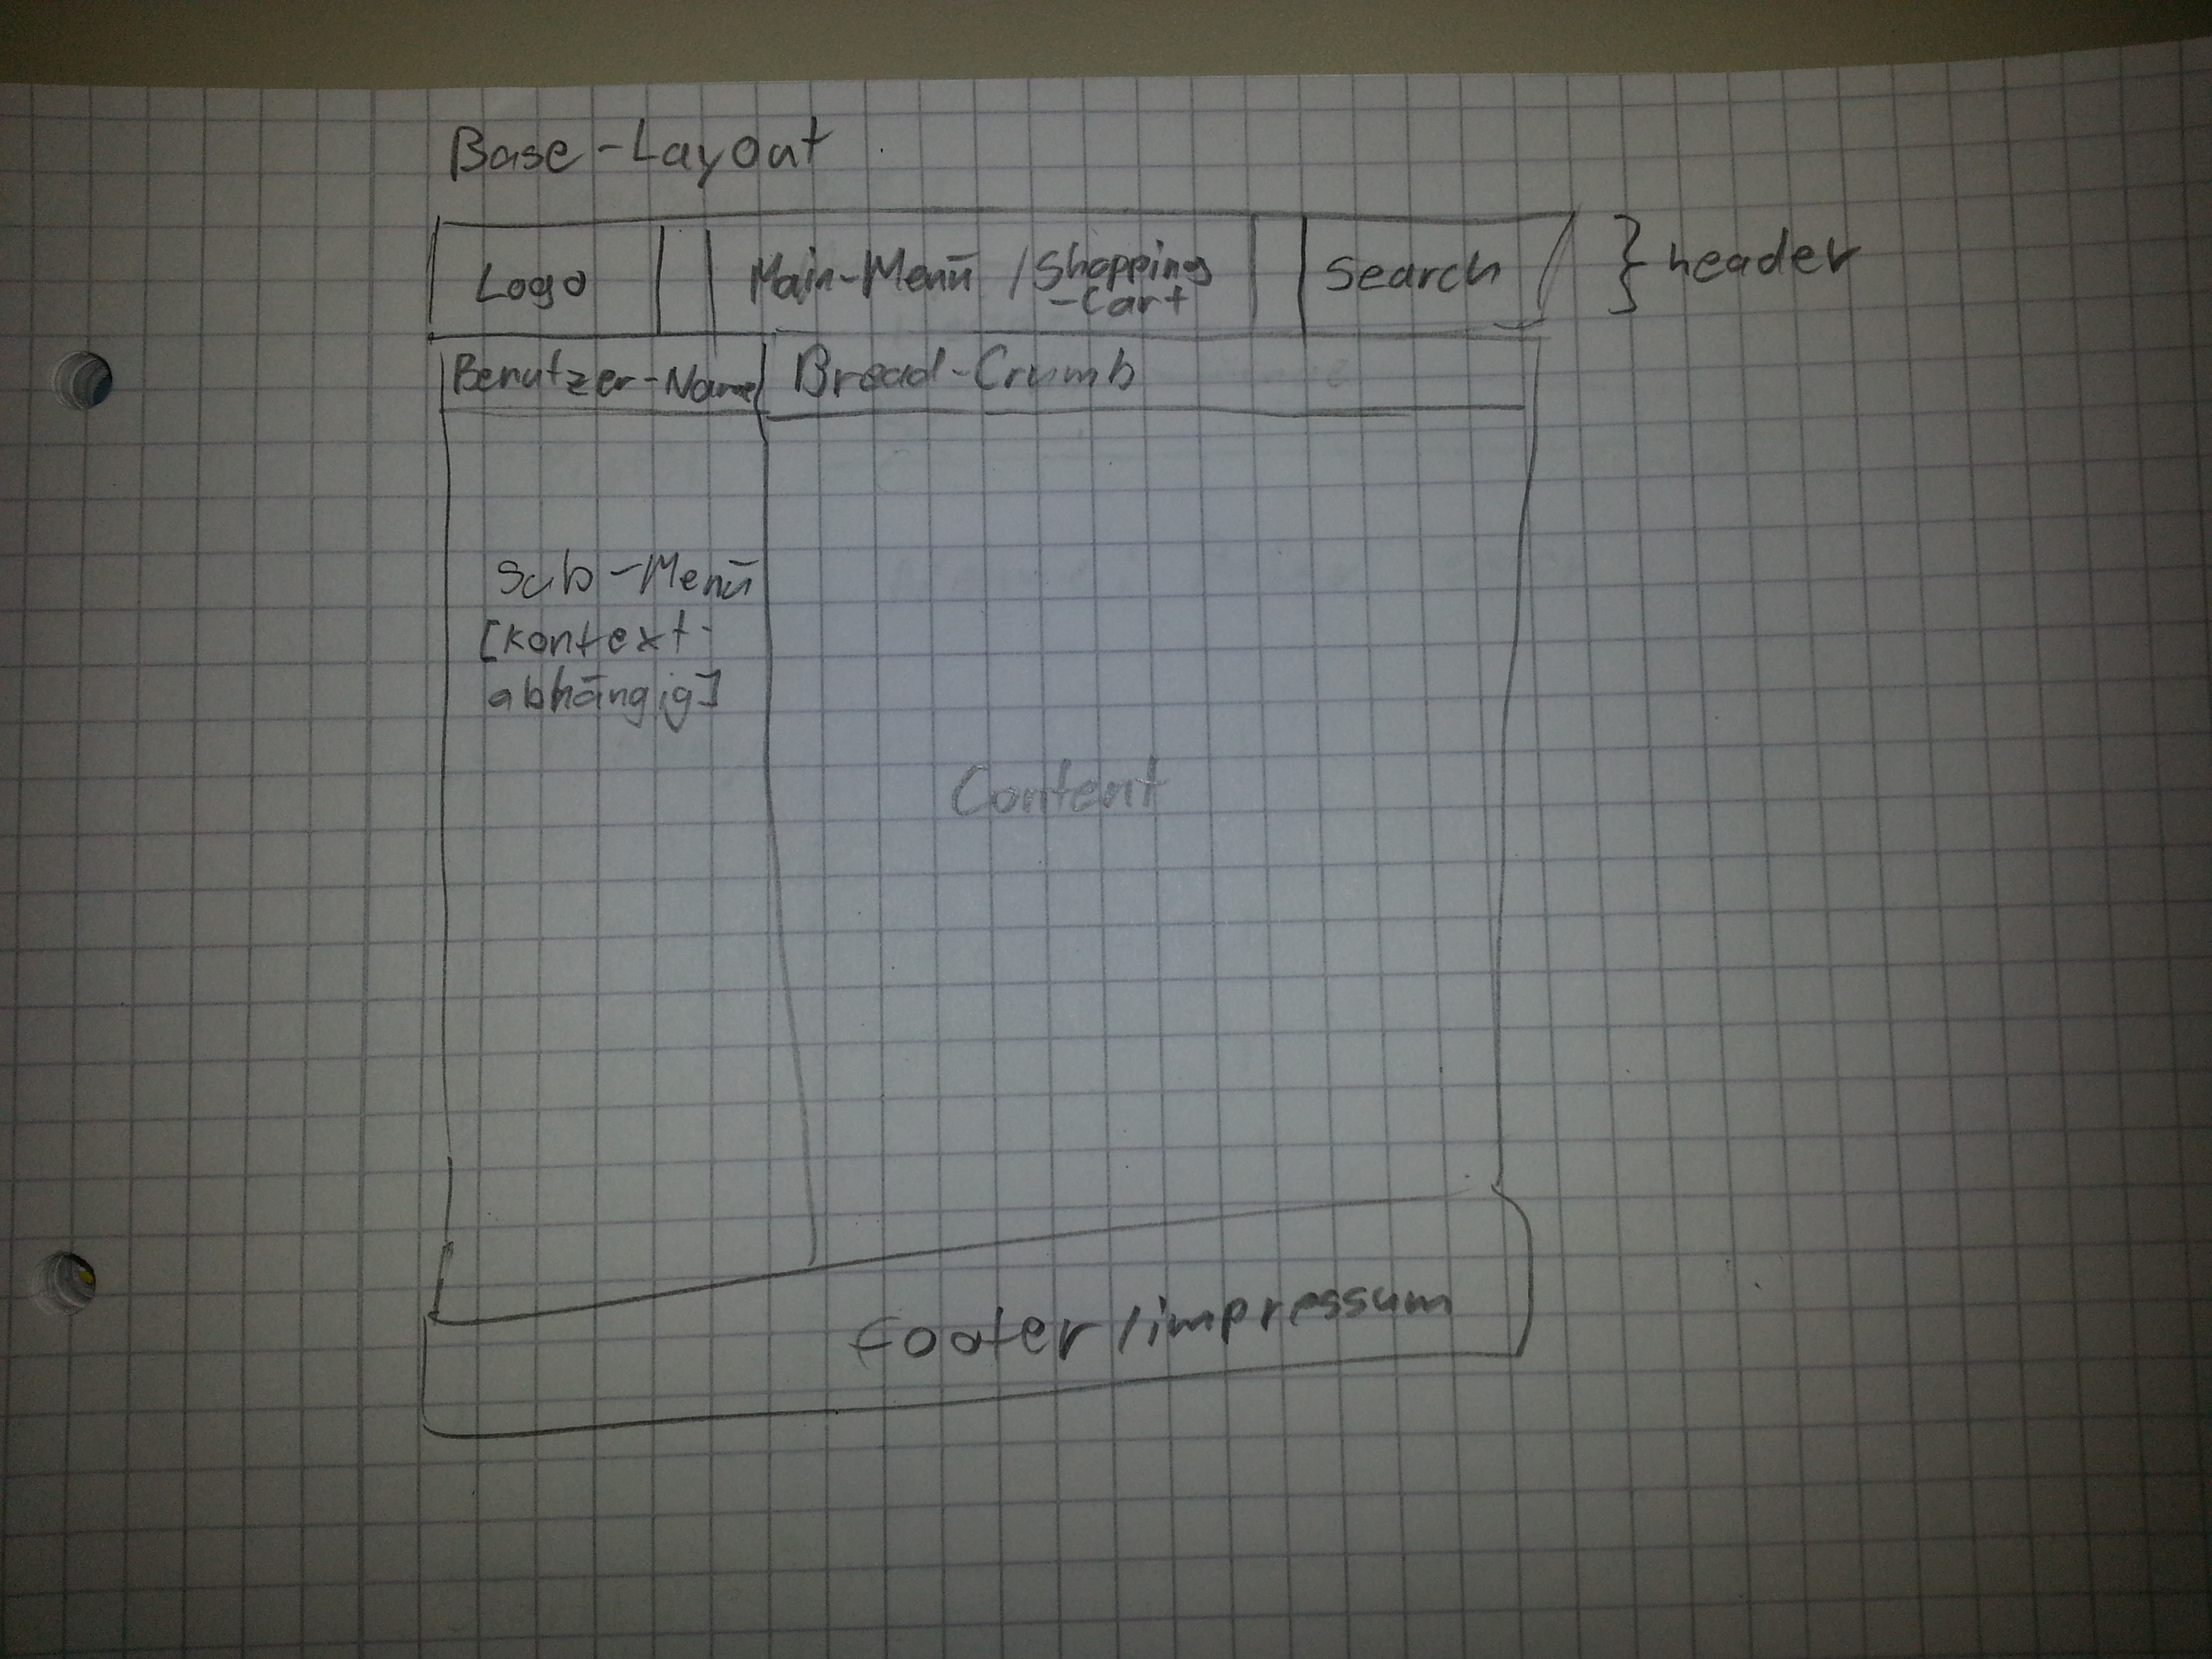 Base-Layout
Logo
Main-Menü / Shopping
-Cart
Search
} header
Benutzer-Name
Bread-Crumb
Sub-Menü
[Kontext-
abhängig]
Content
footer/impressum